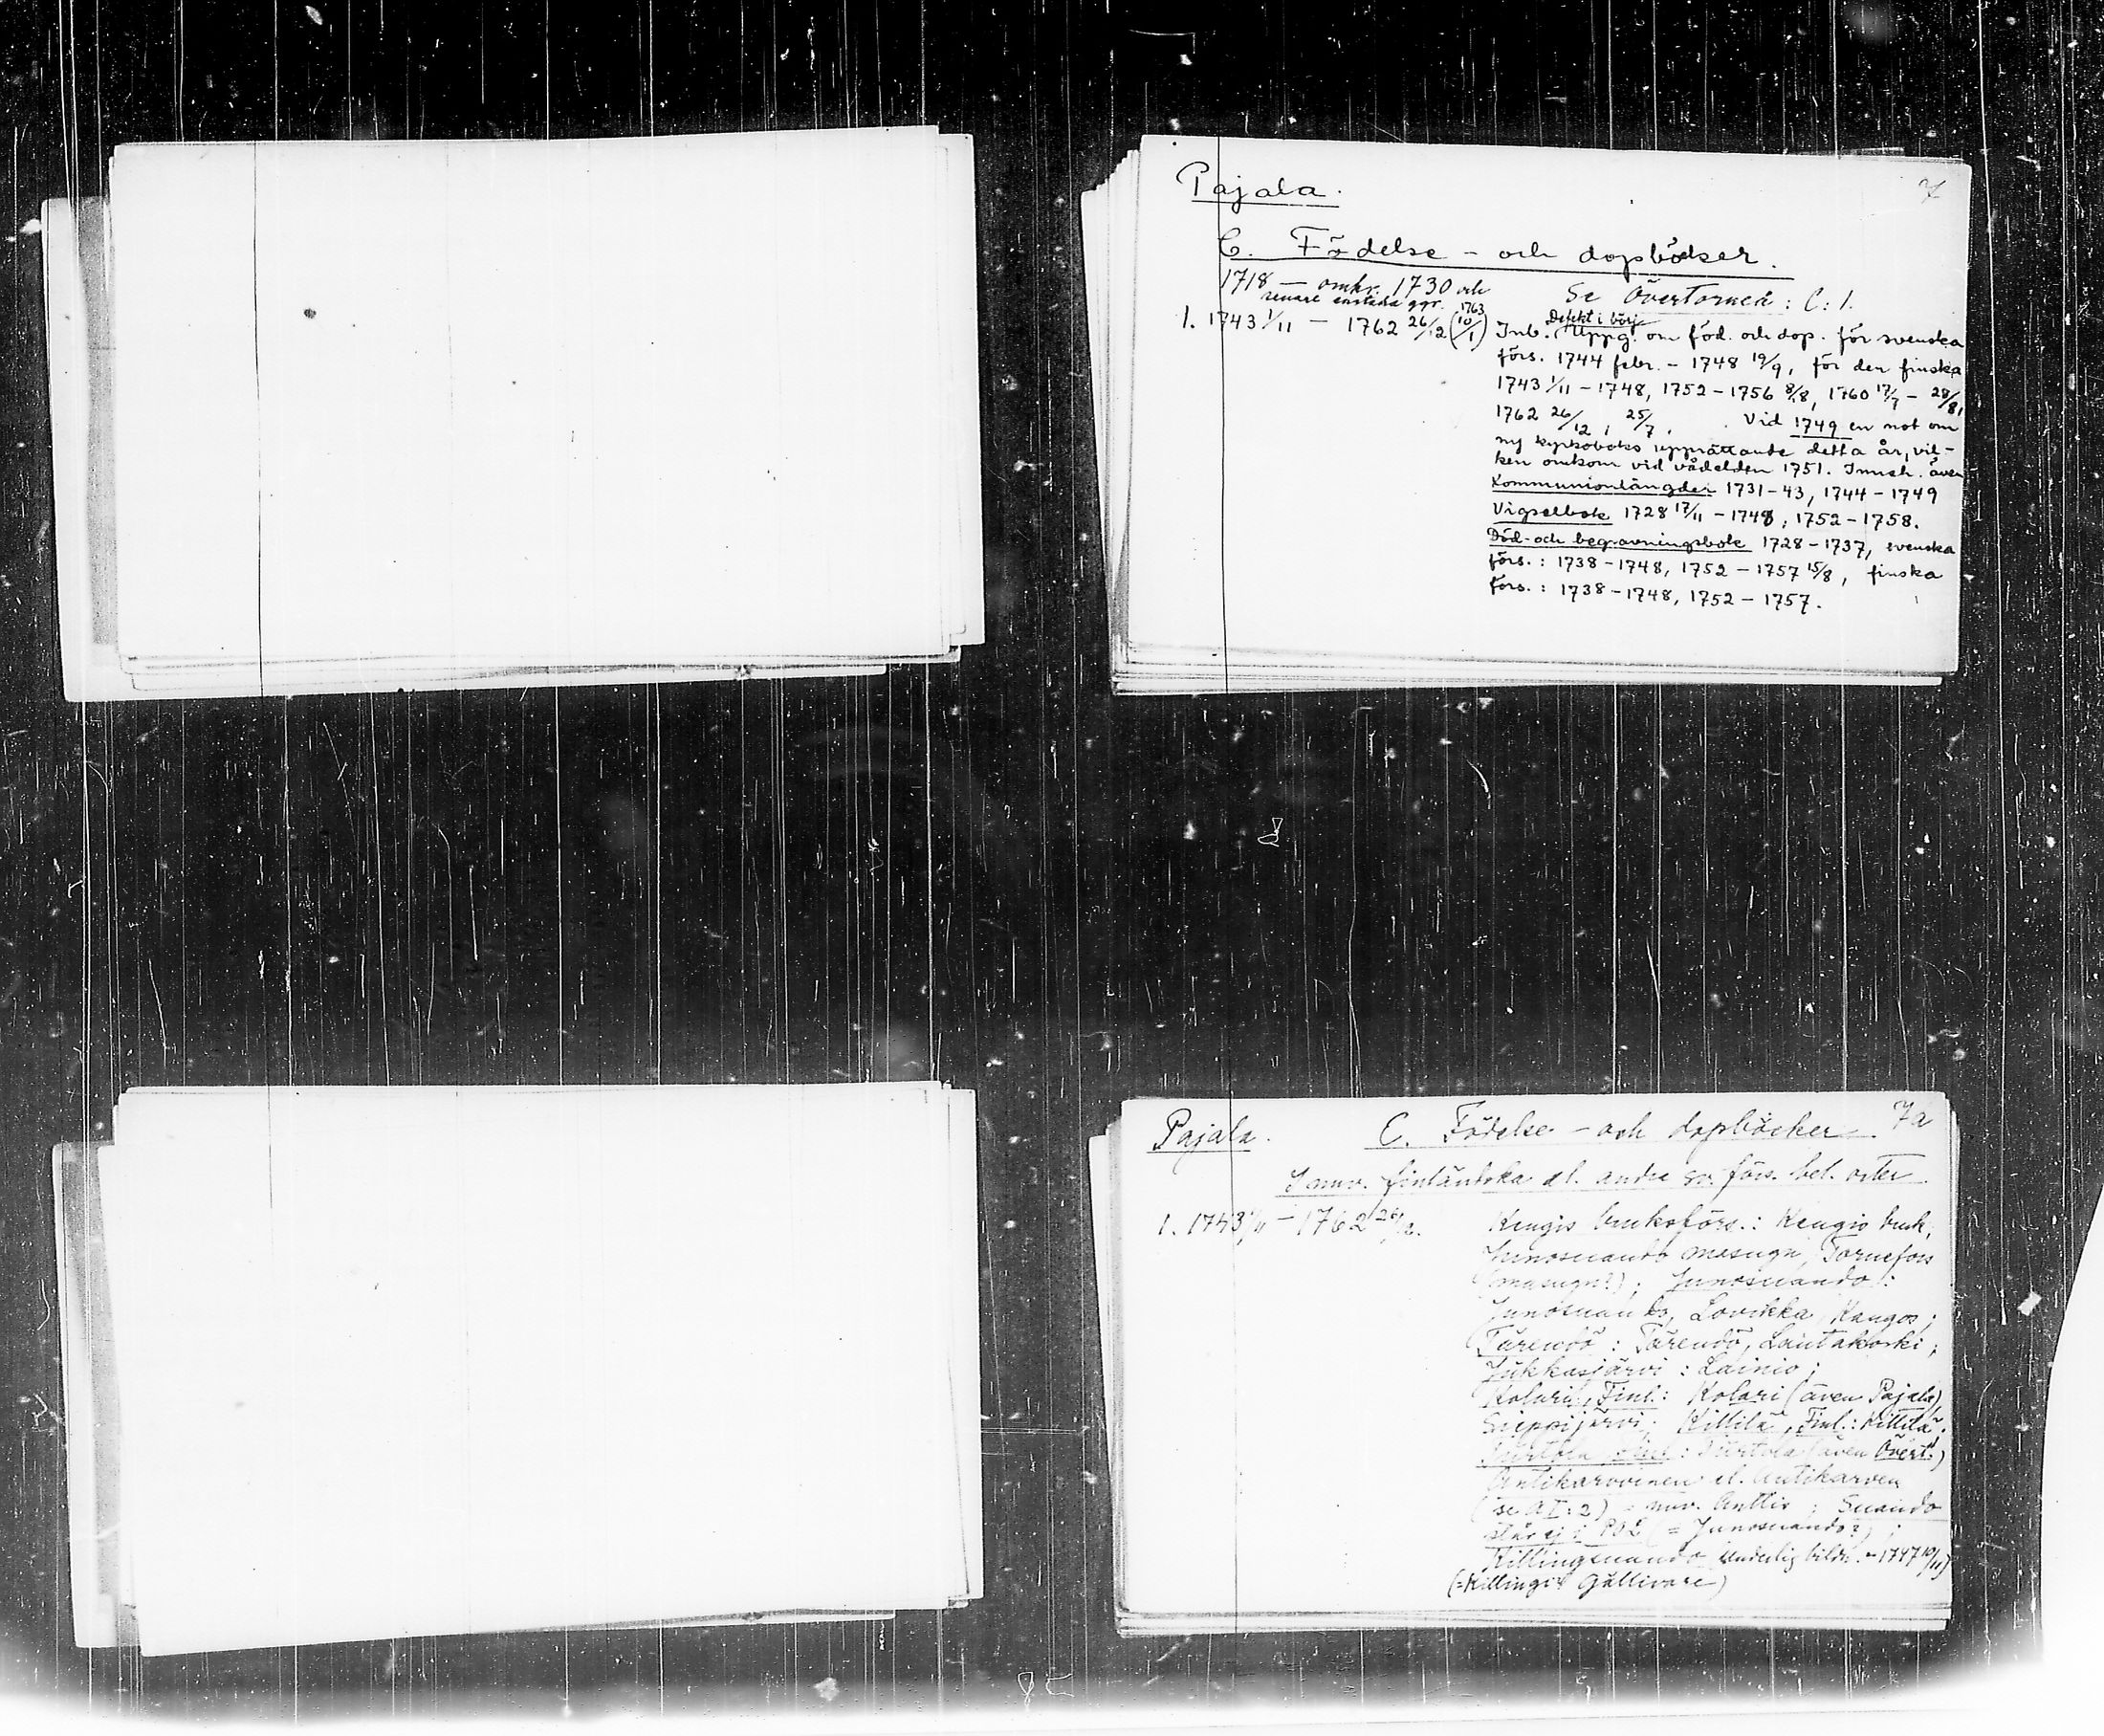 Pajala.
7
C. Födelse- och dopböcker.
1718 — omkr. 1730 och
senare enstaka ggr.
Se Övertorneå: C:1.
1. 1743 1/11 — 1762 26/12 (1763 10/1)
Defekt i börj.
Inb. Uppg. om föd. och dop. för svenska
förs. 1744 febr. - 1748 19/9, för den finska
1743 1/11 - 1748, 1752 - 1756 8/8, 1760 17/7 - 28/8,
1762 26/12, 25/7. Vid 1749 en not om
ny kyrkoboks upprättande detta år, vil-
ken omkom vid vådelden 1751. Inneh. även
Kommunionlängder 1731-43, 1744-1749
Vigselbok 1728 17/11 - 1748, 1752-1758.
Död- och begravningsbok 1728-1737, svenska
förs.: 1738-1748, 1752-1757 15/8, finska
förs.: 1738-1748, 1752-1757.
Pajala.
C. Födelse- och dopböcker. 7a
I nuv. finländska el. andra sv. förs. bel. orter
1. 1743 1/11 - 1762 26/12.
Kengis bruksförs.: Kengis bruk,
Junosuando masugn, Tornefors
(masugn?); Junosuando:
Junosuando, Lovikka, Kangos;
Tärendö: Tärendö, Lautakoski;
Jukkasjärvi: Lainio;
Kolari, Finl.: Kolari (även Pajala),
Sieppijärvi; Kittilä, Finl.: Kittilä;
Turtola, Finl.: Turtola (även Övert.)
Antikarvonen el. Antikarven
(se AI:2) = nuv. Anttis; Suando
står ej i POL (= Junosuando?);
Killingsuando underlig bildn. - 1747 10/11)
(=Killingi i Gällivare)